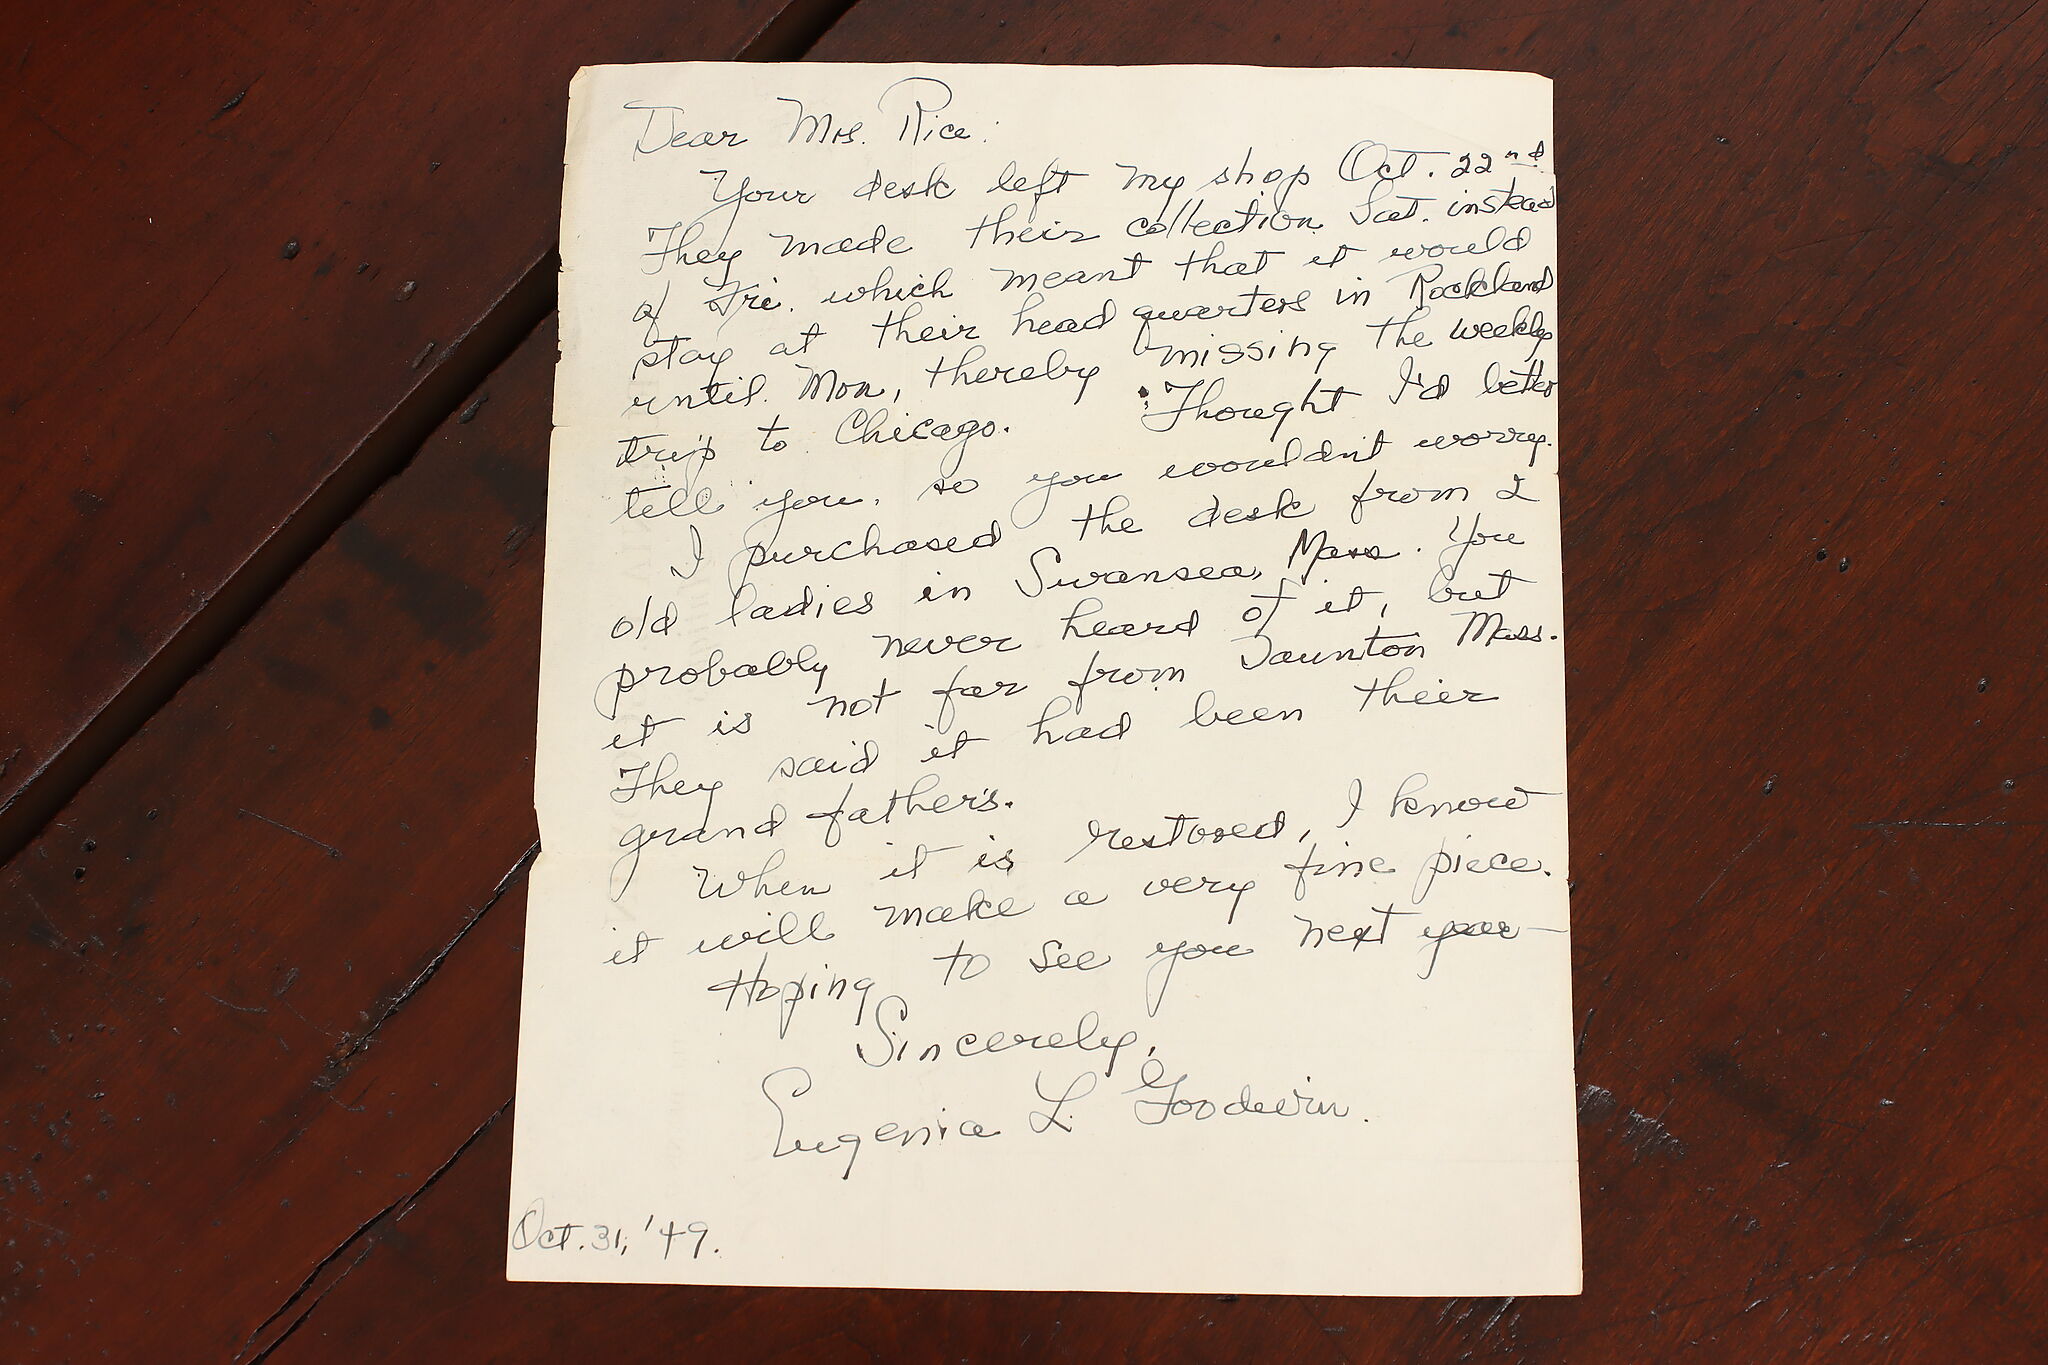 Dear Mrs. Rice:
Your desk left my shop Oct. 22nd
They made their collection Sat. instead
of Fri. which meant that it would
stay at their head quarters in Rockland
until Mon, thereby missing the weekly
trip to Chicago. Thought I'd better
tell you, so you wouldn't worry.
I purchased the desk from 2
old ladies in Swansea, Mass. You
probably never heard of it, but
it is not far from Taunton Mass.
They said it had been their
grand father's.
When it is restored, I know
it will make a very fine piece.
Hoping to see you next year—
Sincerely,
Eugenia L. Goodwin.
Oct. 31, '49.